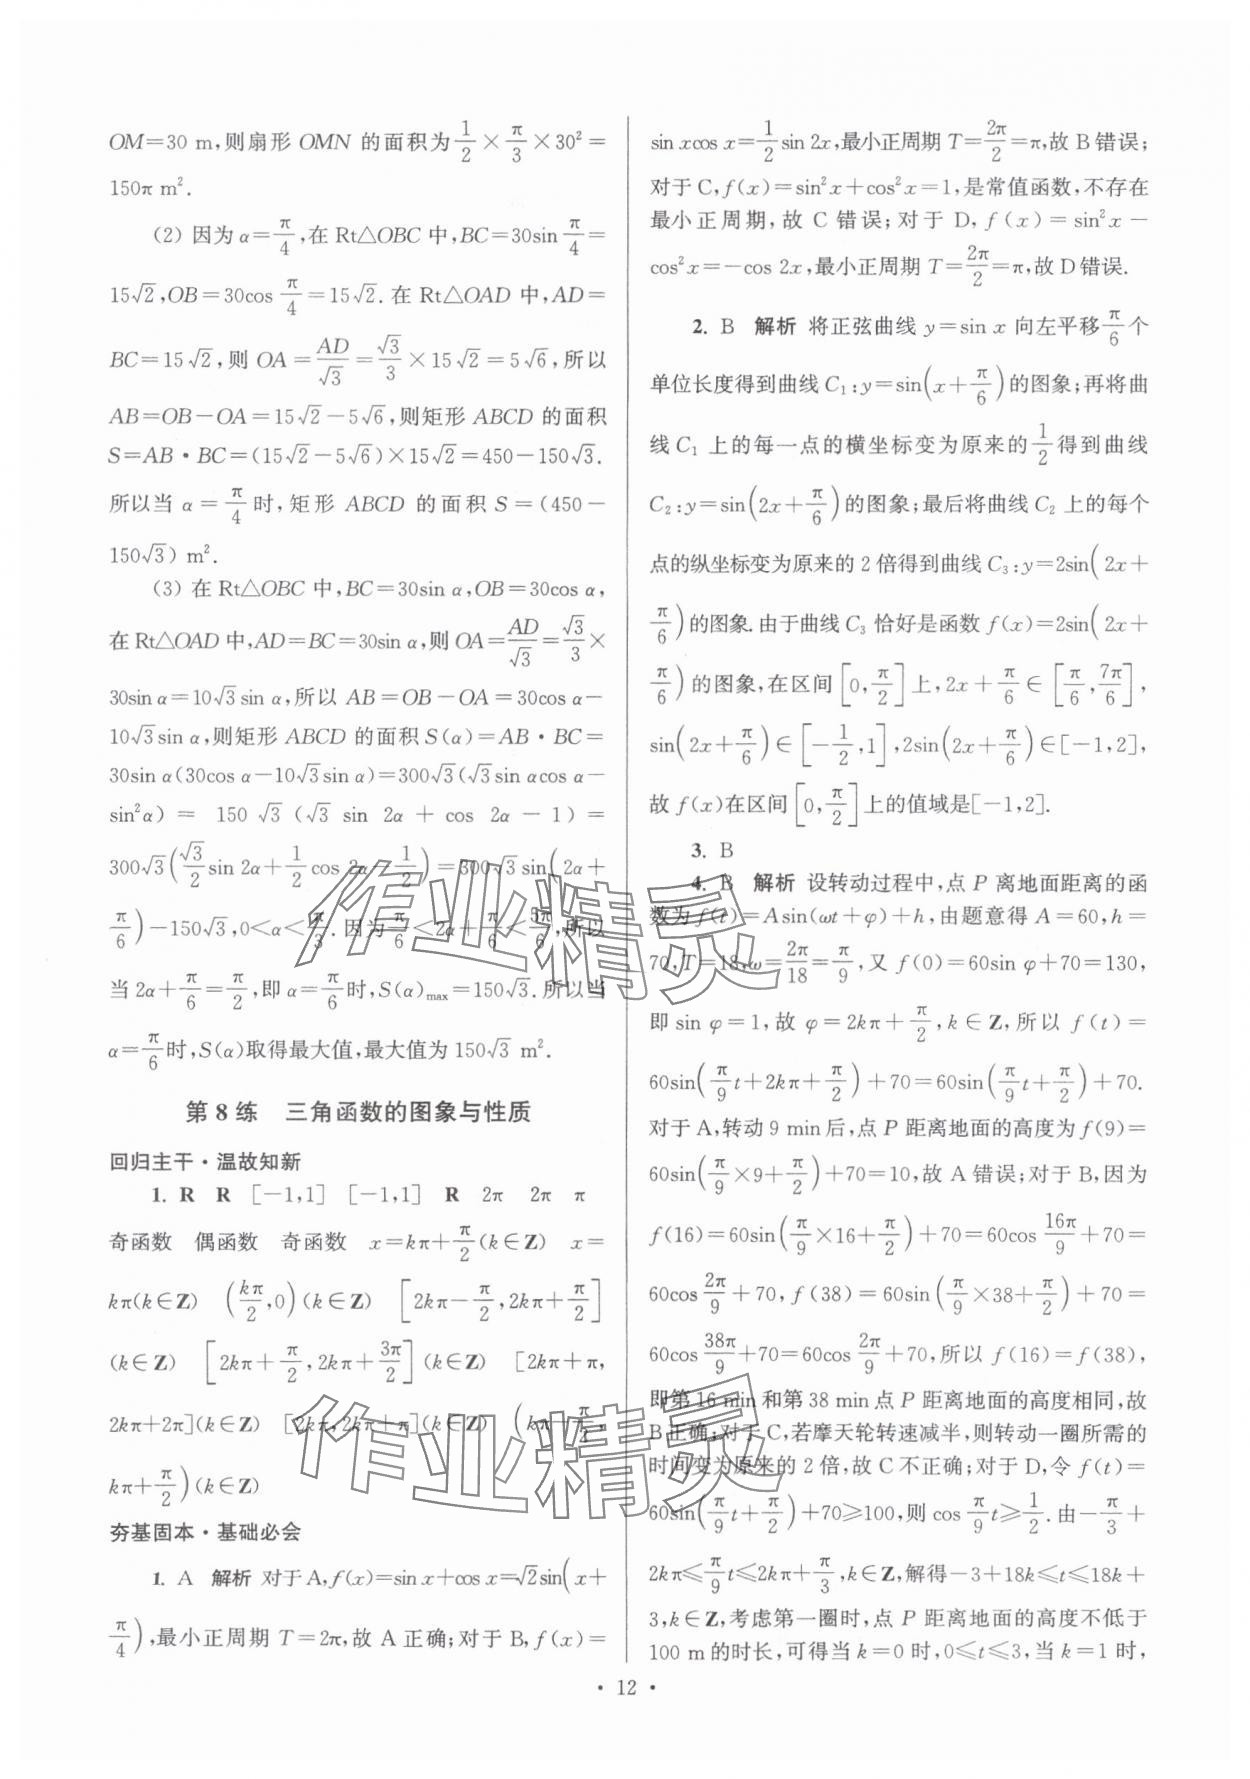 OM=30 m,则扇形 OMN 的面积为 1/2×π/3×30²=
150π m².
(2) 因为 α=π/4,在 Rt△OBC 中,BC=30sin π/4=
15√2,OB=30cos π/4=15√2. 在 Rt△OAD 中,AD=
BC=15√2,则 OA=AD/√3=√3/3×15√2=5√6,所以
AB=OB-OA=15√2-5√6,则矩形 ABCD 的面积
S=AB·BC=(15√2-5√6)×15√2=450-150√3.
所以当 α=π/4 时,矩形 ABCD 的面积 S=(450-
150√3) m².
(3) 在 Rt△OBC 中,BC=30sin α,OB=30cos α,
在 Rt△OAD 中,AD=BC=30sin α,则 OA=AD/√3=√3/3×
30sin α=10√3sin α,所以 AB=OB-OA=30cos α-
10√3sin α,则矩形 ABCD 的面积 S(α)=AB·BC=
30sin α(30cos α-10√3sin α)=300√3(√3sin αcos α-
sin²α)=150√3(√3sin 2α+cos 2α-1)=
300√3(√3/2 sin 2α+1/2 cos 2α-1/2)=300√3sin(2α+
π/6)-150√3,0<α<π/3. 因为π/6<2α+π/6<5π/6,所以
当 2α+π/6=π/2,即 α=π/6时,S(α)max=150√3.所以当
α=π/6时,S(α)取得最大值,最大值为 150√3 m².
第 8 练 三角函数的图象与性质
回归主干·温故知新
1. R R [-1,1] [-1,1] R 2π 2π π
奇函数 偶函数 奇函数 x=kπ+π/2(k∈Z) x=
kπ(k∈Z) (kπ/2,0)(k∈Z) [2kπ-π/2,2kπ+π/2]
(k∈Z) [2kπ+π/2,2kπ+3π/2](k∈Z) [2kπ+π,
2kπ+2π](k∈Z) [2kπ,2kπ+π](k∈Z) (kπ-π/2,
kπ+π/2)(k∈Z)
夯基固本·基础必会
1. A 解析 对于 A,f(x)=sin x+cos x=√2sin(x+
π/4),最小正周期 T=2π,故 A 正确;对于 B,f(x)=
sin xcos x=1/2 sin 2x,最小正周期 T=2π/2=π,故 B 错误;
对于 C,f(x)=sin²x+cos²x=1,是常值函数,不存在
最小正周期,故 C 错误;对于 D,f(x)=sin²x-
cos²x=-cos 2x,最小正周期 T=2π/2=π,故 D 错误.
2. B 解析 将正弦曲线 y=sin x 向左平移π/6个
单位长度得到曲线 C₁:y=sin(x+π/6)的图象;再将曲
线 C₁ 上的每一点的横坐标变为原来的1/2得到曲线
C₂:y=sin(2x+π/6)的图象;最后将曲线 C₂ 上的每个
点的纵坐标变为原来的 2 倍得到曲线 C₃:y=2sin(2x+
π/6)的图象. 由于曲线 C₃ 恰好是函数 f(x)=2sin(2x+
π/6)的图象,在区间[0,π/2]上,2x+π/6∈[π/6,7π/6],
sin(2x+π/6)∈[-1/2,1],2sin(2x+π/6)∈[-1,2],
故 f(x)在区间[0,π/2]上的值域是[-1,2].
3. B
4. B 解析 设转动过程中,点 P 离地面距离的函
数为 f(t)=Asin(ωt+φ)+h,由题意得 A=60,h=
70,T=18,ω=2π/18=π/9,又 f(0)=60sin φ+70=130,
即 sin φ=1,故 φ=2kπ+π/2,k∈Z,所以 f(t)=
60sin(π/9 t+2kπ+π/2)+70=60sin(π/9 t+π/2)+70.
对于 A,转动 9 min 后,点 P 距离地面的高度为 f(9)=
60sin(π/9×9+π/2)+70=10,故 A 错误;对于 B,因为
f(16)=60sin(π/9×16+π/2)+70=60cos 16π/9+70=
60cos 2π/9+70,f(38)=60sin(π/9×38+π/2)+70=
60cos 38π/9+70=60cos 2π/9+70,所以 f(16)=f(38),
即第 16 min 和第 38 min 点 P 距离地面的高度相同,故
B 正确;对于 C,若摩天轮转速减半,则转动一圈所需的
时间变为原来的 2 倍,故 C 不正确;对于 D,令 f(t)=
60sin(π/9 t+π/2)+70≥100,则 cos π/9 t≥1/2. 由-π/3+
2kπ≤π/9 t≤2kπ+π/3,k∈Z,解得-3+18k≤t≤18k+
3,k∈Z,考虑第一圈时,点 P 距离地面的高度不低于
100 m 的时长,可得当 k=0 时,0≤t≤3,当 k=1 时,
作业精灵
作业精灵
· 12 ·